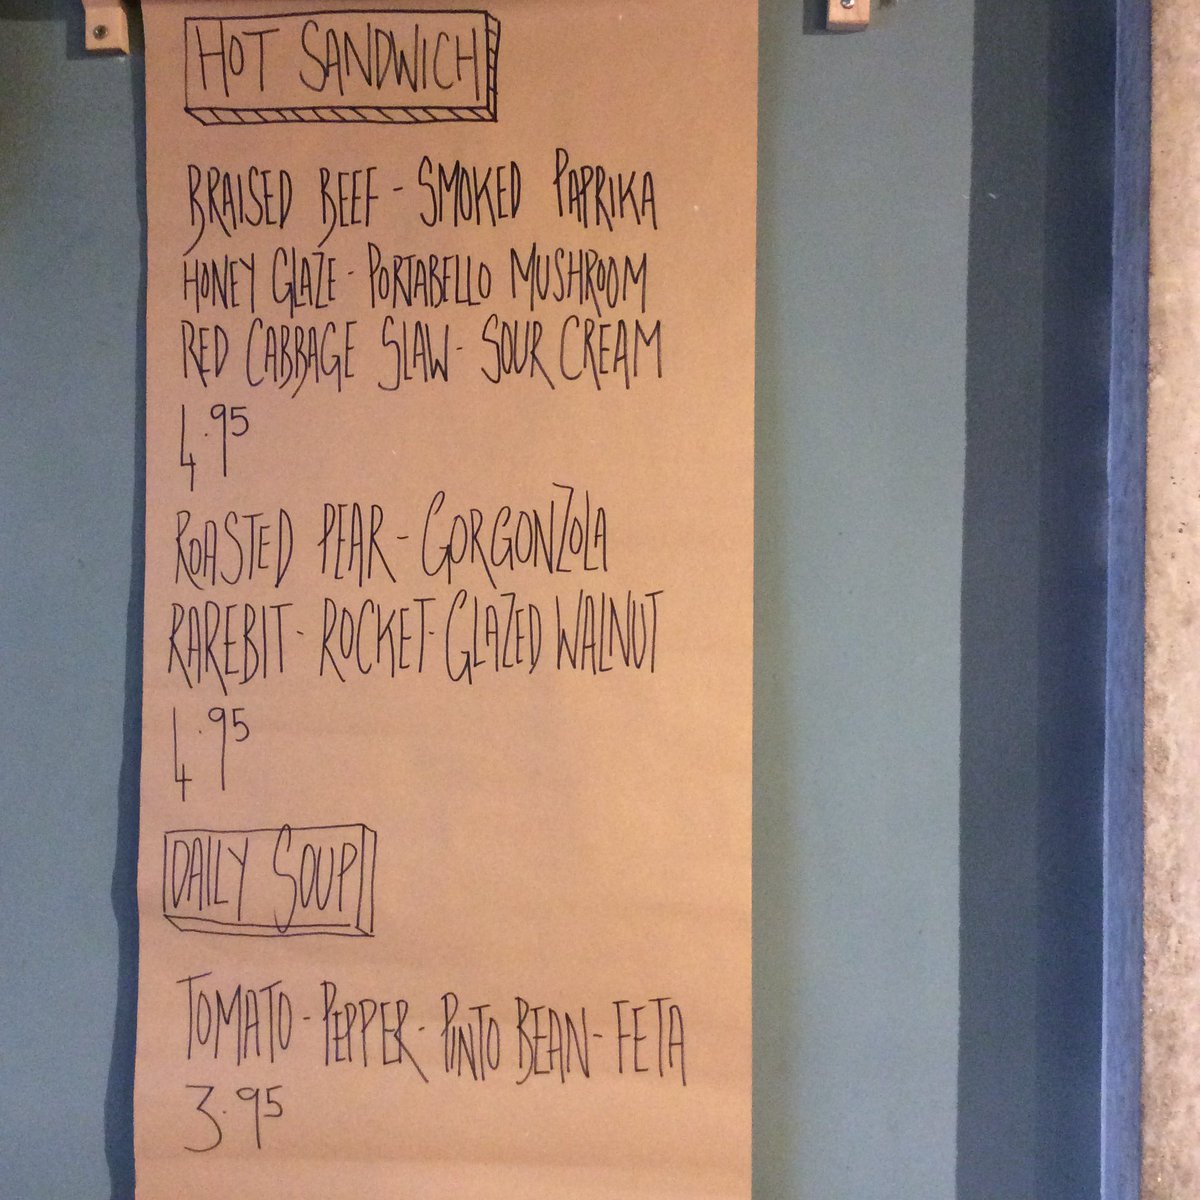 HOT SANDWICH
BRAISED BEEF - SMOKED PAPRIKA
HONEY GLAZE - PORTABELLO MUSHROOM
RED CABBAGE SLAW - SOUR CREAM
4.95
ROASTED PEAR - GORGONZOLA
RAREBIT - ROCKET - GLAZED WALNUT
4.95
DAILY SOUP
TOMATO - PEPPER - PINTO BEAN - FETA
3.95